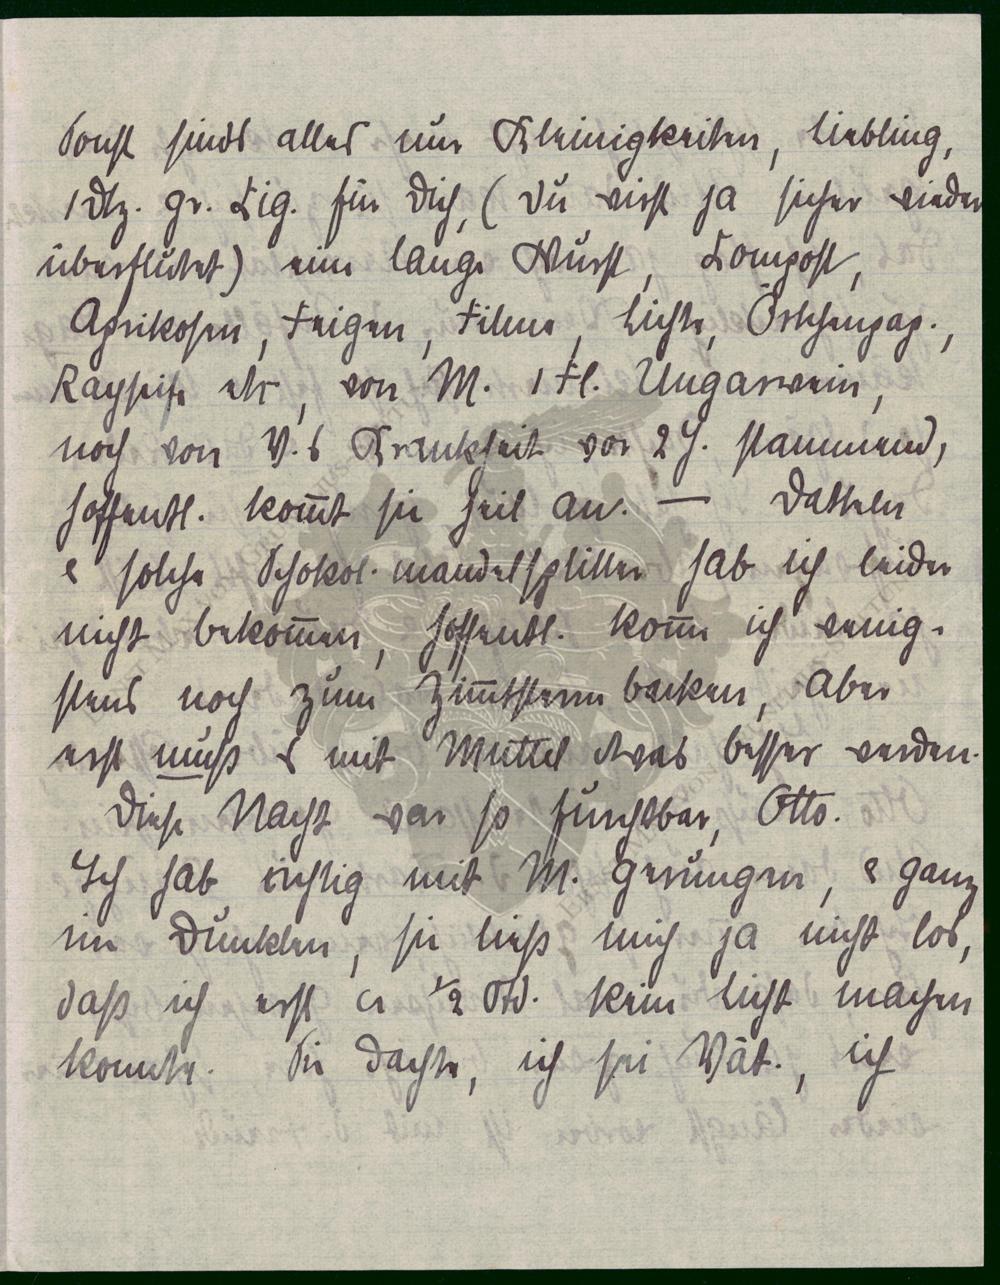 Sonst sinds alles nur Kleinigkeiten, Liebling,
1 Dtz. gr. Zig. für Dich, (Du wirst ja sicher wieder
überflutet) eine lange Wurst, Kompost,
Aprikosen, Feigen, Filme, Lichte, Örtchenpap.,
Rayseife etc, von M. 1 Fl. Ungarwein,
noch von V.s Krankheit vor 2 J. stammend,
hoffentl. kom̅t sie heil an. — Datteln
& solche Schokol. mandelsplitter hab ich leider
nicht bekom̅en, hoffentl. kom̅e ich wenig-
stens noch zum Zim̅tsterne backen, aber
erst muß es mit Muttel etwas besser werden.
Diese Nacht war so furchtbar, Otto.
Ich hab richtig mit M. gerungen, & ganz
im Dunklen, sie ließ mich ja nicht los,
daß ich erst ca ½ Std. kein Licht machen
konnte. Sie dachte, ich sei Vat., ich